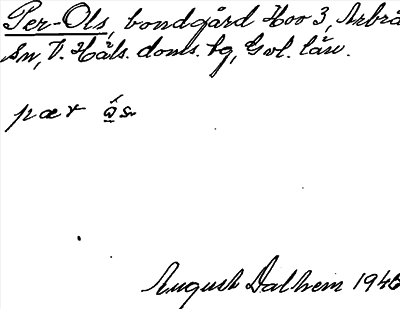 Per-Ols, bondgård Hov 3, Arbrå
Sn, V. Häls. doms. hg, Gvl. län.
pær
August Dalhem 1946